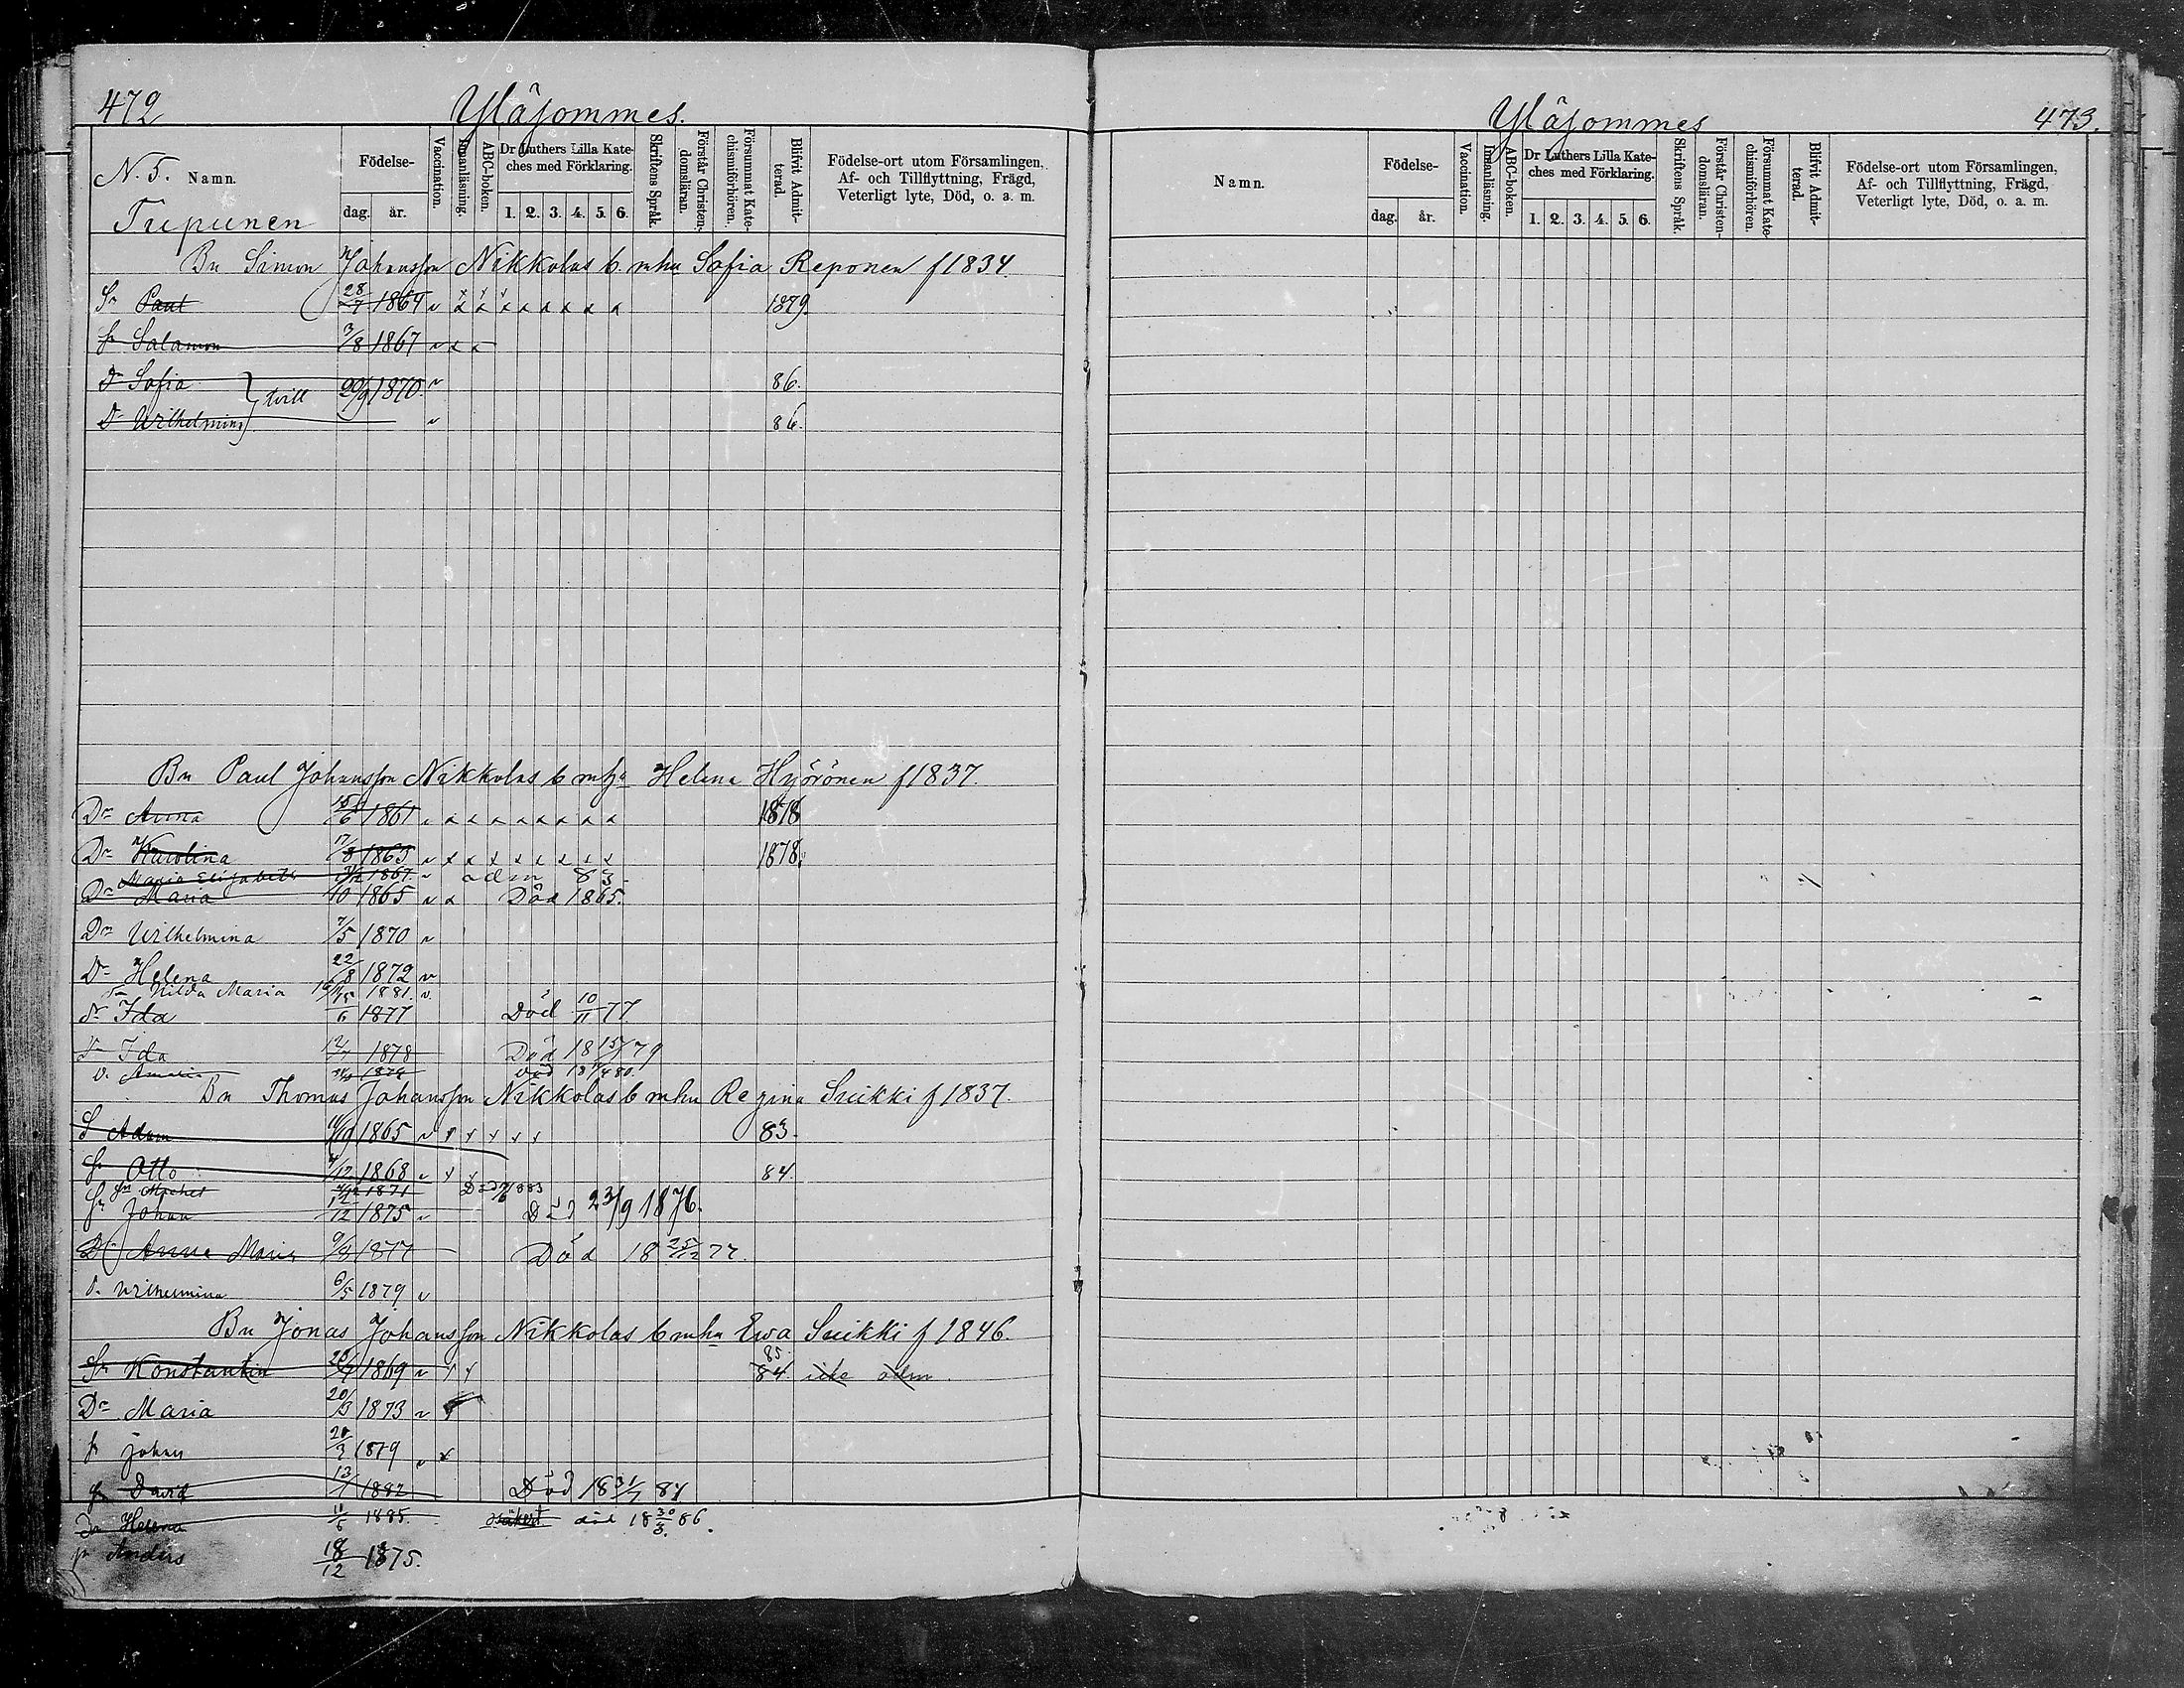 472 Yläjommes.
N. 5. Namn.
Födelse-
dag. år.
Vaccination.
Innanläsning.
ABC-boken.
Dr Luthers Lilla Kate-
ches med Förklaring.
1. 2. 3. 4. 5. 6.
Skriftens Språk.
Förstår Christen-
domsläran.
Försummat Kate-
chismiförhören.
Blifvit Admit-
terad.
Födelse-ort utom Församlingen,
Af- och Tillflyttning, Frägd,
Veterligt lyte, Död, o. a. m.
Tupunen
Bn Simon Johansson Nikkolas b. mhu Sofia Reponen f 1834
Sn Paul 28/7 1864 v x x x x x x x x 1879.
Sn Salamon 3/8 1867 v x x
Dr Sofia } tvill 20/9 1870. v 86.
Dr Wilhelmina v 86.
Bn Paul Johansson Nikkolas b mha Helena Hyörönen f 1837.
Dr Anna 1861 v x x x x x x x x 1878
Dr Karolina 17/8 1863 v x x x x x x x x 1878.
Maria Elisabeth 1867. v adm 83.
Dr Maria 1865 v x Död 1865.
Dr Wilhelmina 7/5 1870 v
Dr Helena 22/8 1872 v
Hilda Maria 1881. v.
Dr Ida 1877 Död 10/11 77.
Dr Ida 12/7 1878 Död 18 15/7 79
D. Amalia Död
Bn Thomas Johansson Nikkolas b mhu Regina Suikki f 1837.
S Adam 1865 v x x x x x 83.
Sn Otto 4/12 1868 v x 84.
Sn Michel 1871
Sn Johan 12/12 1875 v Död 23/9 1876.
Dr Anna Maria 9/4 1877 Död 18 25/12 77.
D. Wilhelmina 6/5 1879 v
Bn Jonas Johansson Nikkolas b mhn Ewa Suikki f 1846.
85.
Sn Konstantin 1869 v x x 84. icke adm.
Dr Maria 20/3 1873 v
Sn Johan 20/3 1879 v x
Sn David 1882 Död 18 31/7 84
Dr Helena 11/5 1885. död 18 30/3 86.
Sn Anders 18/12 1875.
Yläjommes 473.
Namn.
Födelse-
dag. år.
Vaccination.
Innanläsning.
ABC-boken.
Dr Luthers Lilla Kate-
ches med Förklaring.
1. 2. 3. 4. 5. 6.
Skriftens Språk.
Förstår Christen-
domsläran.
Försummat Kate-
chismiförhören.
Blifvit Admit-
terad.
Födelse-ort utom Församlingen,
Af- och Tillflyttning, Frägd,
Veterligt lyte, Död, o. a. m.